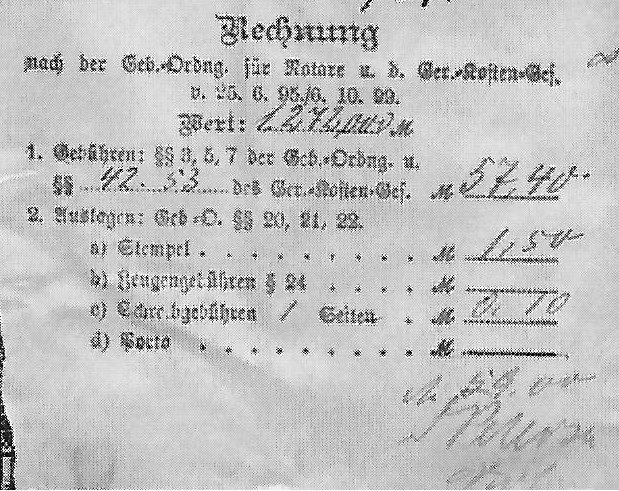 Rechnung
nach der Geb.-Ordng. für Notare u. d. Ger.-Kosten-Ges.
v. 25. 6. 95/6. 10. 99.
Wert: M
1. Gebühren: §§ 3, 5, 7 der Geb.-Ordng. u.
§§ 42. 53 des Ger.-Kosten-Ges. M 57,40
2. Auslagen: Geb.-O. §§ 20, 21, 22.
a) Stempel . . . . . . . . M 1,50
b) Zeugengebühren § 24 . . . . M
c) Schreibgebühren 1 Seiten . M 0,10
d) Porto . . . . . . . . . M
M 59.00